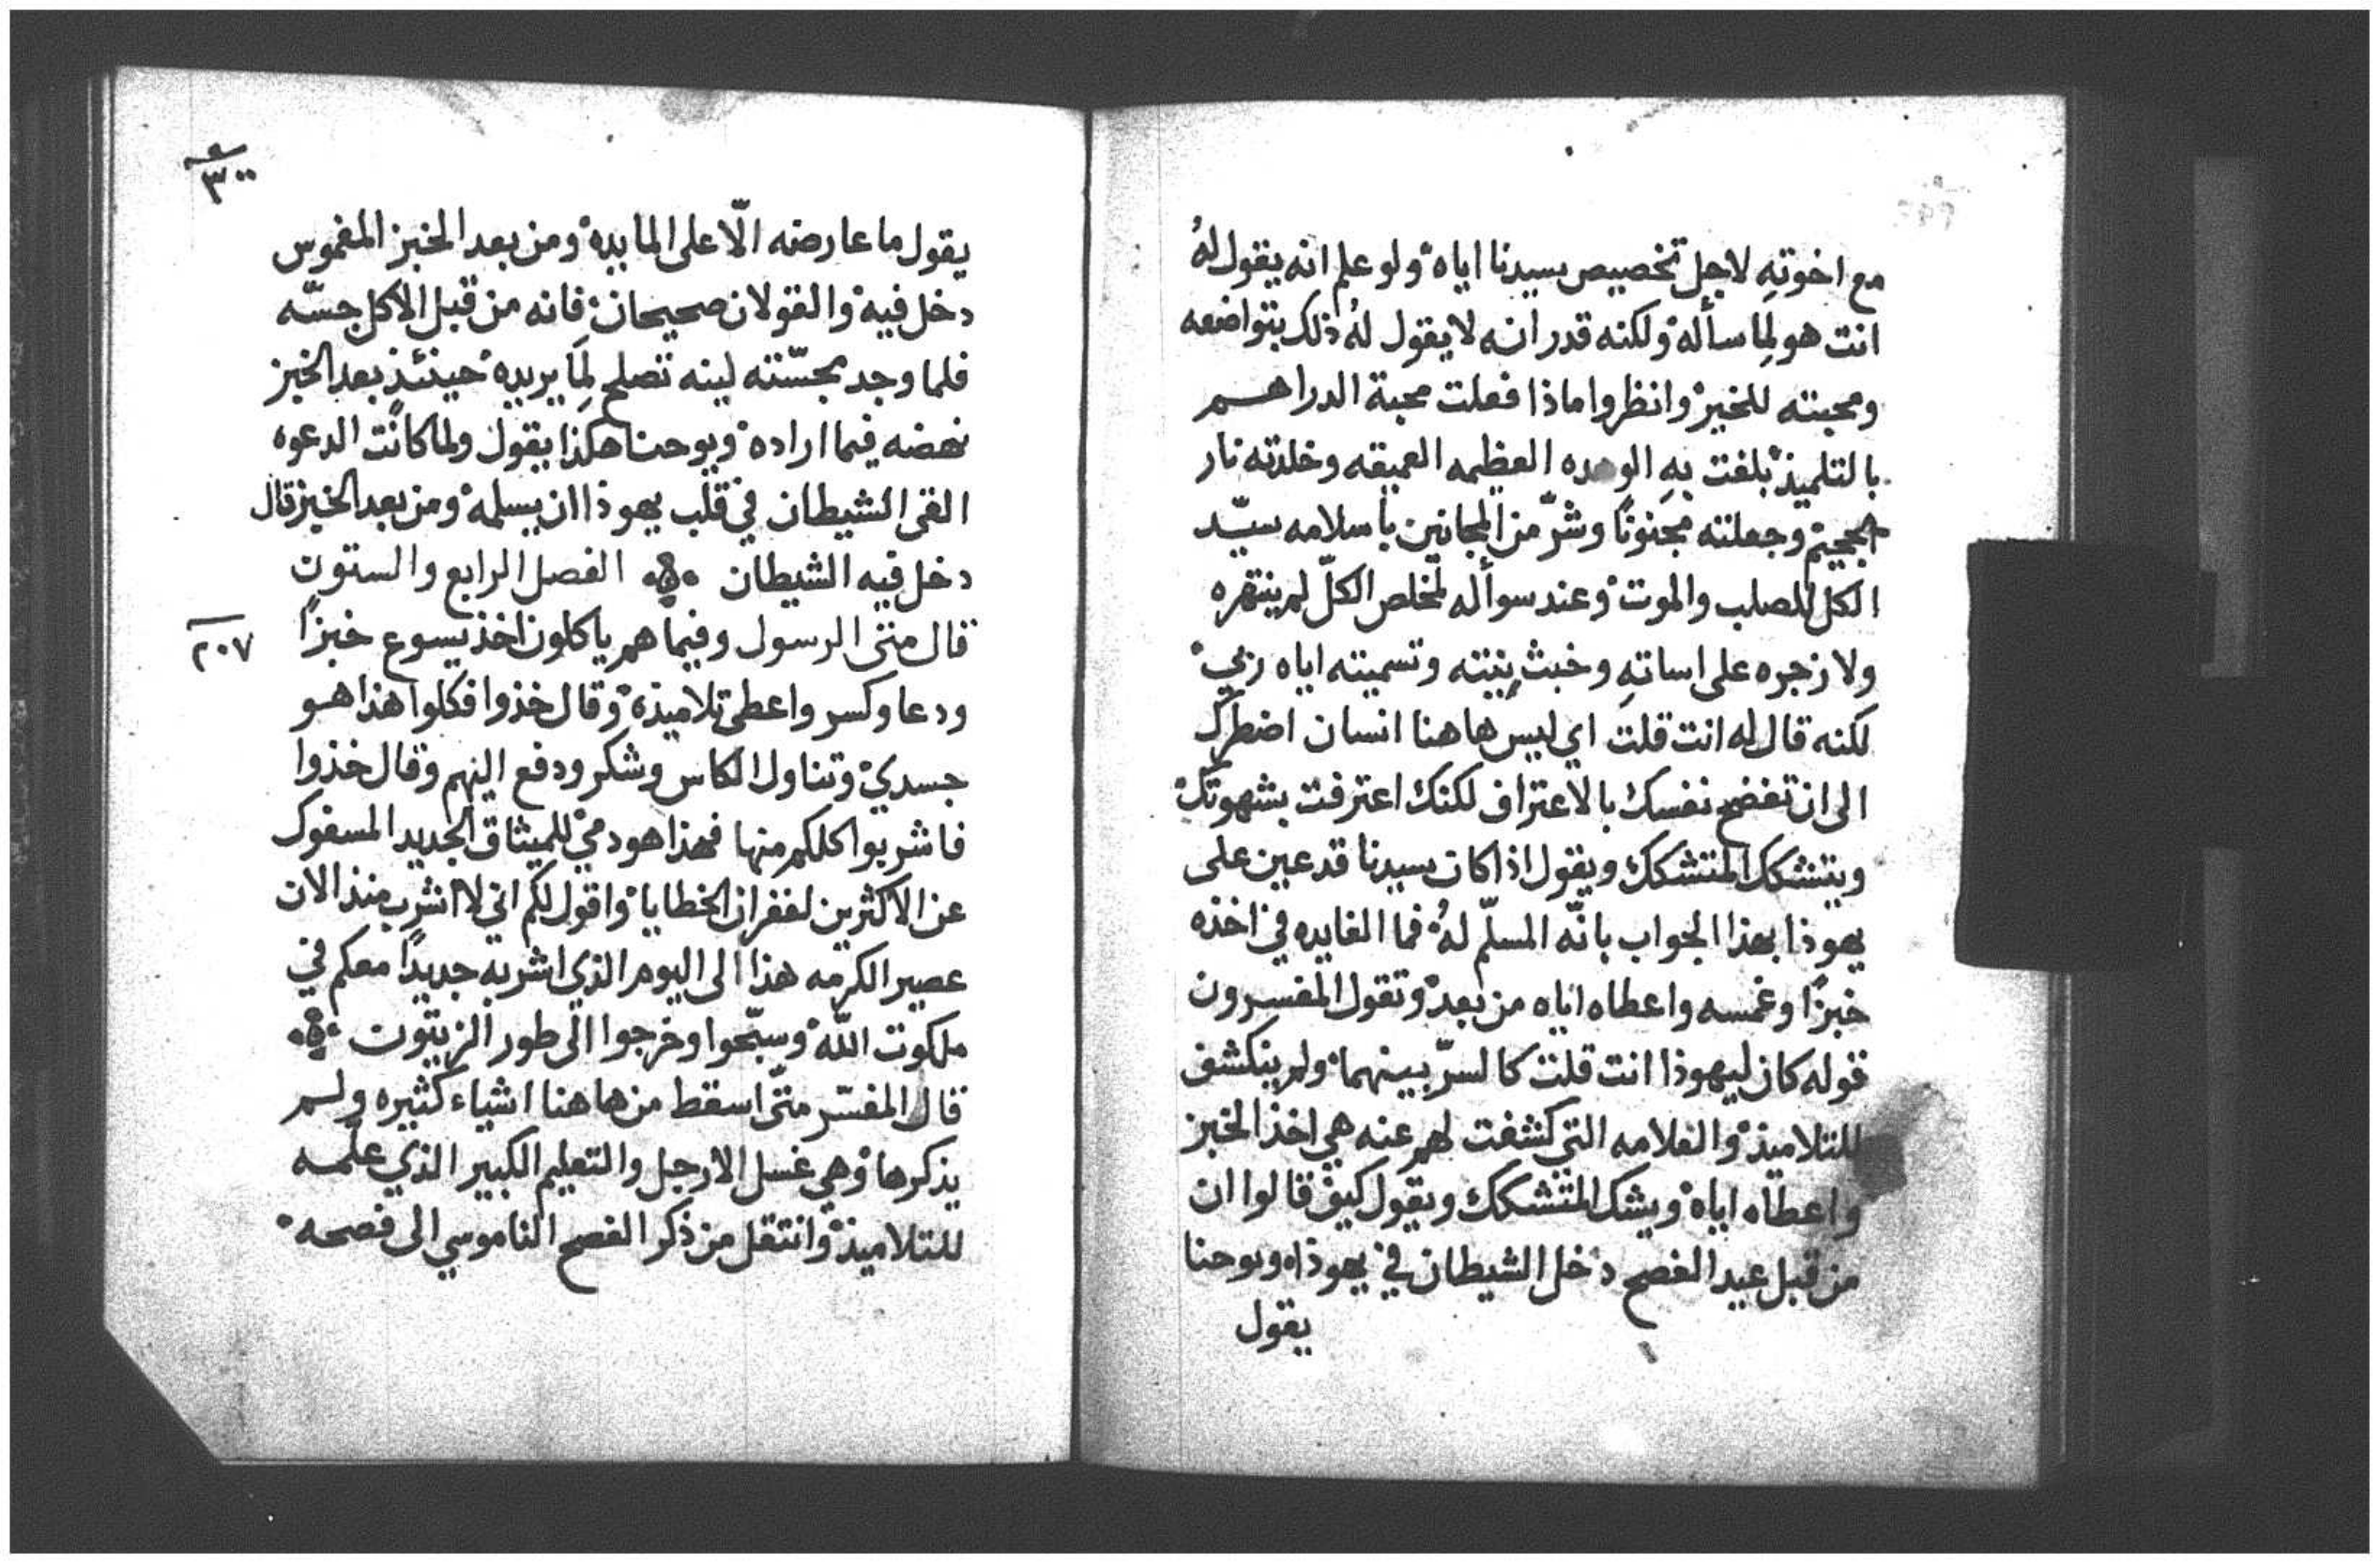 مع اخوتهِ لاجل تخصيص سيدنا اياه ولو علم انه يقول لهُ
انت هو لِما سأله ولكنه قدر انه لا يقول لهُ ذلك بتواضعه
ومحبته للخير وانظروا ماذا فعلت محبة الدراهم
بالتلميذ بلغت بهِ الوهده العظيمه العميقه وخلدته نار
الجحيم وجعلته مجنونًا وشرّ من المجانين باسلامه سيّد
الكل للصلب والموت وعند سوأله لمخلص الكلّ لم ينتهره
ولا زجره على اساتهِ وخبث نِيته وتسميته اياه ربي
لكنه قال له انت قلت اي ليس هاهنا انسان اضطرك
الى ان تفضح نفسك بالاعتراف لكنك اعترفت بشهوتك
ويتشكك المتشكك ويقول اذا كان سيدنا قد عين على
يهوذا بهذا الجواب بانّه المسلّم لهُ فما الفايده في اخذه
خبزًا وغمسه واعطاه اياه من بعد وتقول المفسرون
قوله كان ليهوذا انت قلت كالسرّ بينهما ولم ينكشف
للتلاميذ والعلامه التي كشفت لهم عنه هي اخذ الخبز
واعطاه اياه ويشك المتشكك ويقول كيف قالوا ان
من قبل عيد الفصح دخل الشيطان في يهوذا ويوحنا
يقول
٣٠٠
يقول ما عارضه الّا على المايده ومن بعد الخبز المغموس
دخل فيه والقولان صحيحان فانه من قبل الاكل جسّه
فلما وجد مجسّته لينه تصلح لِمَا يريده حينئذ بعد الخبز
نهضه فيما اراده ويوحنا هكذا يقول ولما كانت الدعوه
القى الشيطان في قلب يهوذا ان يسلمه ومن بعد الخبز قال
دخل فيه الشيطان الفصل الرابع والستون
قال متى الرسول وفيما هم ياكلون اخذ يسوع خبزًا
٢٠٧
ودعا وكسر واعطى تلاميذه وقال خذوا فكلوا هذا هو
جسدي وتناول الكاس وشكر ودفع اليهم وقال خذوا
فاشربوا كلكم منها فهذا هو دمي للميثاق الجديد المسفوك
عن الاكثرين لغفران الخطايا واقول لكم اني لا اشرب منذ الان
عصير الكرمه هذا الى اليوم الذي اشربه جديدًا معكم في
ملكوت الله وسبّحوا وخرجوا الى طور الزيتون
قال المفسّر متّى اسقط من هاهنا اشياء كثيره ولم
يذكرها وهي غسل الارجل والتعليم الكبير الذي علّمه
للتلاميذ وانتقل من ذكر الفصح الناموسي الى فصحه